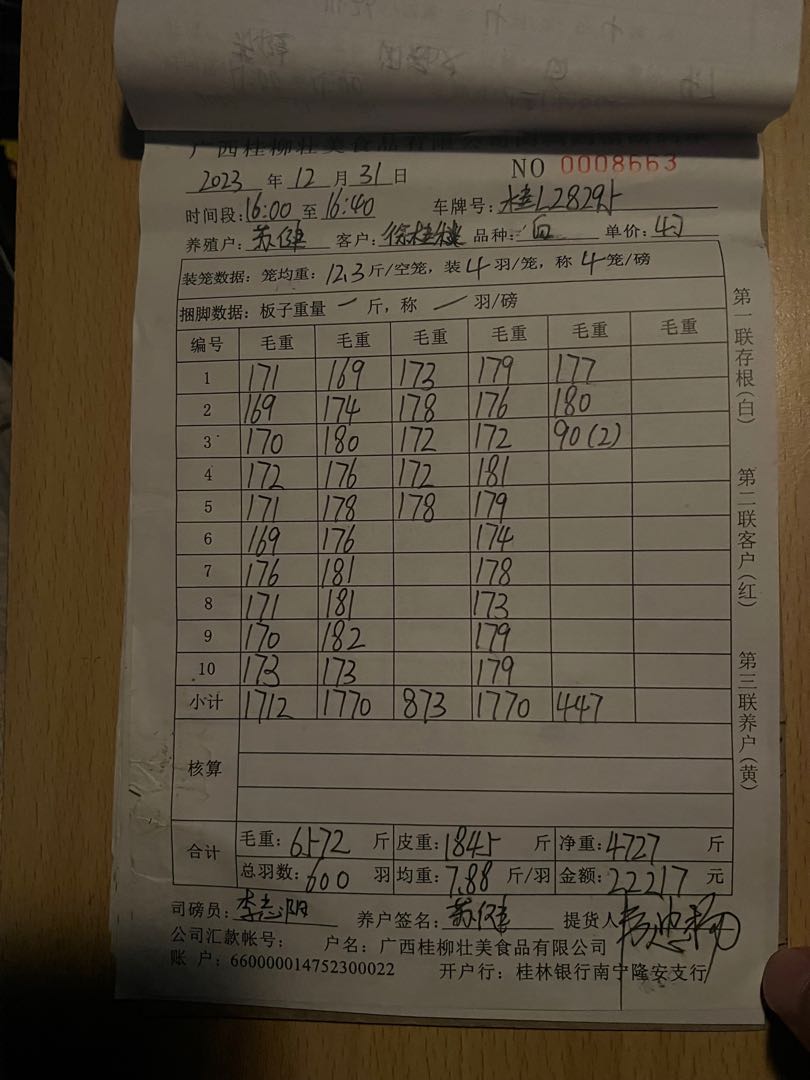 广西桂柳壮美食品有限公司
NO 0008663
2023 年 12 月 31 日
时间段: 16:00 至 16:40 车牌号: 桂L28295
养殖户: 苏健 客户: 徐桂 品种: 白 单价: 4.7
装笼数据: 笼均重: 12.3 斤/空笼, 装 4 羽/笼, 称 4 笼/磅
捆脚数据: 板子重量 一 斤, 称 一 羽/磅
编号 毛重 毛重 毛重 毛重 毛重 毛重
1 171 169 173 179 177
2 169 174 178 176 180
3 170 180 172 172 90(2)
4 172 176 172 181
5 171 178 178 179
6 169 176 174
7 176 181 178
8 171 181 173
9 170 182 179
10 173 173 179
小计 1712 1770 873 1770 447
核算
合计 毛重: 6572 斤 皮重: 1845 斤 净重: 4727 斤
总羽数: 600 羽 均重: 7.88 斤/羽 金额: 22217 元
司磅员: 李志阳 养户签名: 苏健 提货人
公司汇款帐号: 户名: 广西桂柳壮美食品有限公司
账 户: 660000014752300022 开户行: 桂林银行南宁隆安支行
第一联存根(白)
第二联客户(红)
第三联养户(黄)